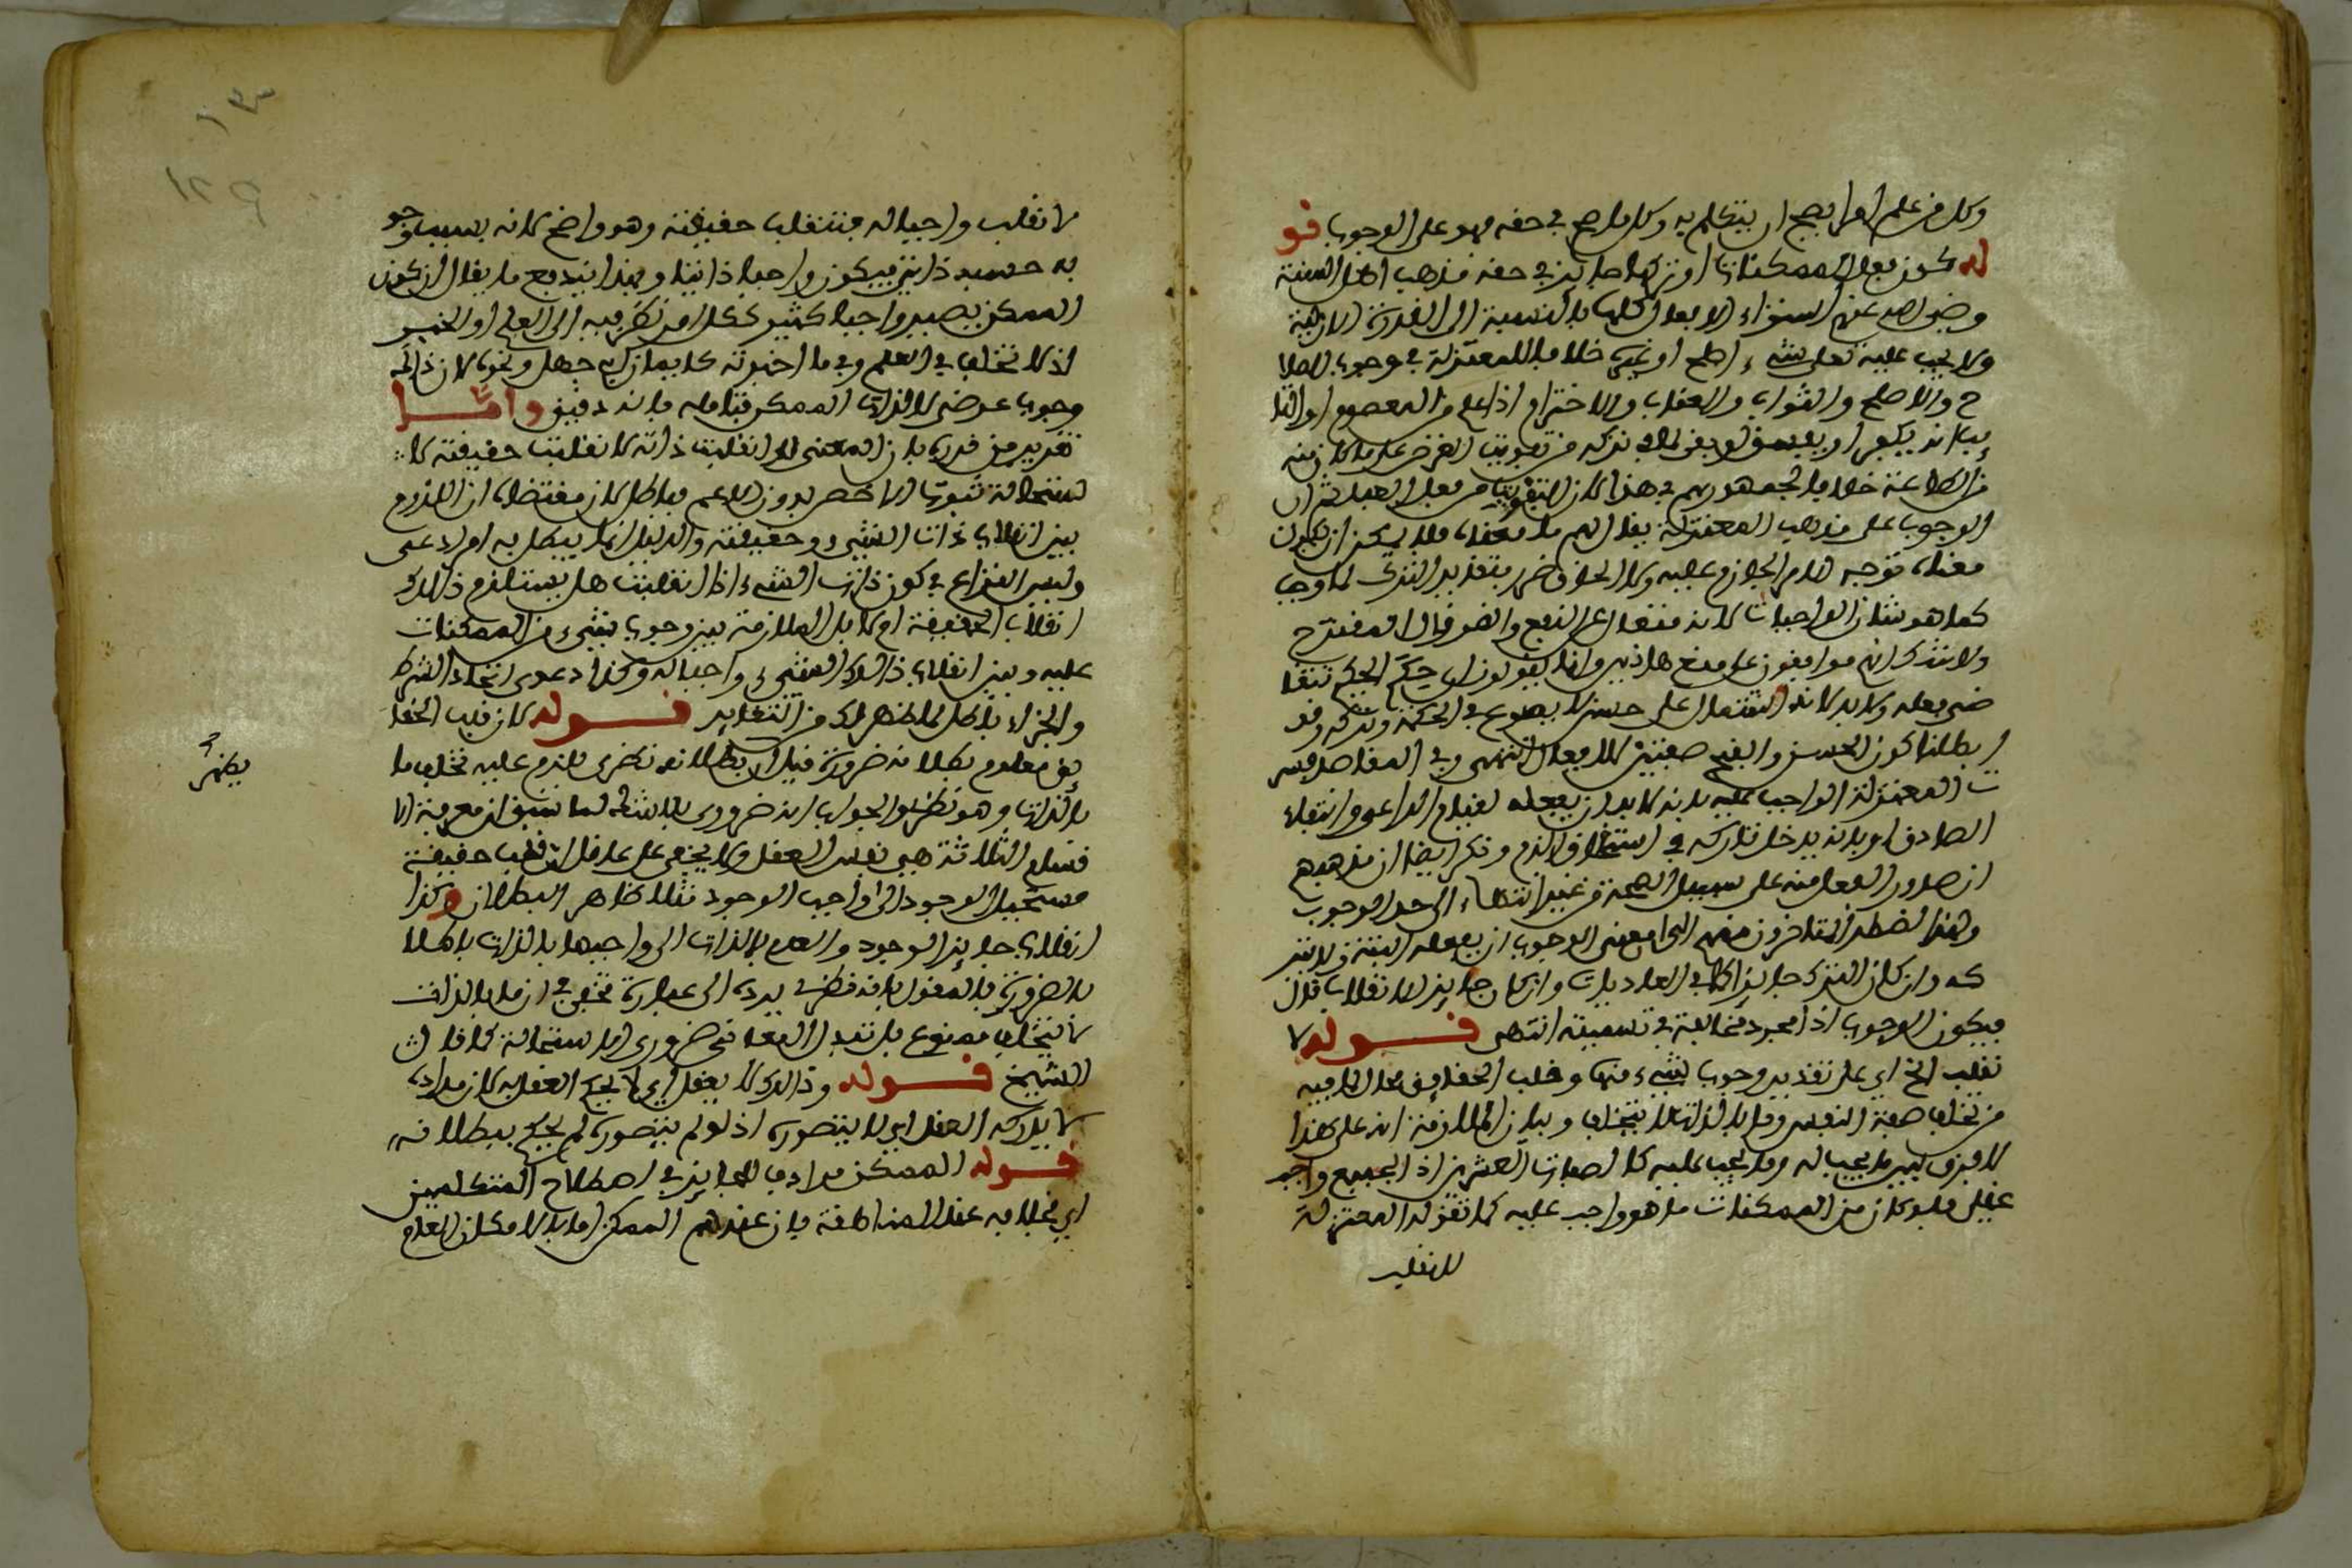 وكل من علم امرا يصح ان يتكلم به وكل ما صح في حقه فهو على الوجوب قو
له كون فعل الممكنات او تركها جايز في حقه مذهب اهل السنة
رضي الله عنهم استواء الافعال كلها بالنسبة الى القدرة الازلية
ولا يجب عليه تعلى شيء اصلح او غيره خلافا للمعتزلة في وجوب الصلا
ح والاصلح والثواب والعقاب والاخترام اذا علم من المعصوم او التا
يب انه يكفر او يفسق لو بقي لما في تركه من تفويت الغرض على ما كان منه
من الطاعة خلافا لجمهورهم في هذا لان التفويت من فعل العبد ثم ان
الوجوب على مذهب المعتزلة يقال لهم ما معناه فلا يمكن ان يكون
معناه توجه الامر الجازم عليه ولا لحاق ضرر بتقدير الترك لما وجب
كما هو شان الواجبات لانه منفعل عن النفع والضر وقال المقترح
ولا شك انهم موافقون على منع هاذين وانما يقولون ان حكم الحكيم تتقا
ضى فعله ولا بد لانه اشتمل على حسن لا يصوغ في الحكمة تركه وقد
ابطلنا كون الحسن والقبح صفتين للافعال انتهى وفي المقاصد فسر
ت المعتزلة الواجب عليه بانه لا بد ان يفعله لقيام الداعي وانتفاء
الصارف او بانه يدخل تاركه في استحقاق الذم وذكر ايضا ان مذهبهم
ان صدور الفعل منه على سبيل الصحة من غير انتهاء الى حد الوجوب
ولهذا اضطر المتاخرون منهم الى ان معنى الوجوب ان يفعله البتة ولا يتر
كه وان كان الترك جايزا كما في العاديات وان كان جايز الانقلاب قال
فيكون الوجوب اذا مجرد مخالفة في تسميته انتهى قوله لا
نقلب الخ اي على تقدير وجوب شيء منها وقلب الحقايق محال لما فيه
من تخلف صفة النفس وما بالذات لا يتخلف وبيان الملازمة انه على هذا
لا فرق بين ما يجب له وما يجب عليه كالصفات العشرين اذ الجميع واجب
عقلي فلو كان من الممكنات ما هو واجب عليه كما تقوله المعتزلة
لانقلب
١٣٠
١٢٩
لانقلب واجبا له فتنقلب حقيقته وهو واضح لانه بسبب وجو
به حسبه ذاتي فيكون واجبا ذاتيا وبهذا يندفع ما يقال ان كون
الممكن يصير واجبا كثير ككل امر نظر فيه الى العلم او الخبر
اذ لا تخلف في العلم وفي ما اخبر به كايمان ابي جهل ونحوه لان ذالك
وجوب عرضي لا لذات الممكن فتامله فانه دقيق واما
تقرير من قرره بان المعنى لو انقلبت ذاته لانقلبت حقيقته لا
ستحالة ثبوت الاخص بدون الاعم فباطل لان مقتضاه ان اللزوم
بين انقلاب ذات الشيء وحقيقته والدليل انما يبطل به امر ادعي
وليس النزاع في كون ذات الشيء اذا انقلبت هل يستلزم ذالك
انقلاب الحقيقة ام لا بل الملازمة بين وجوب شيء من الممكنات
عليه وبين انقلاب ذالك الشيء واجبا له وكذا دعوى اتحاد الشرط
والجزاء باطل لما ظهر لك من التغاير قوله لان قلب الحقا
يق معلوم بطلانه ضرورة قيل ان بطلانه نظري للزم عليه تخلف ما
بالذات وهو نظري والجواب انه ضروري بالمثال لما سبق ان معرفة الا
قسام الثلاثة هي نفس العقل ولا يخفى على عاقل ان قلب حقيقة
مستحيل الوجود الى واجب الوجود مثلا ظاهر البطلان وكذا
انقلاب جايز الوجود والعدم بالذات الى واجبها بالذات باطل
بالضرورة فالقول بانه نظري يرده الى عبارة تخفى في ان ما بالذات
لا يتخلف ممنوع بل تبدل الحقايق ضروري الاستحالة كما قال
الشيخ قوله وذالك لا يعقل اي لا يحكم العقل به لان ما اد
لا يدركه العقل اي لا يتصوره اذ لو لم يتصوره لم يحكم ببطلانه
قوله الممكن مرادف للجايز في اصطلاح المتكلمين
اي بخلافه عند المناطقة فان عندهم الممكن اما بالامكان العام